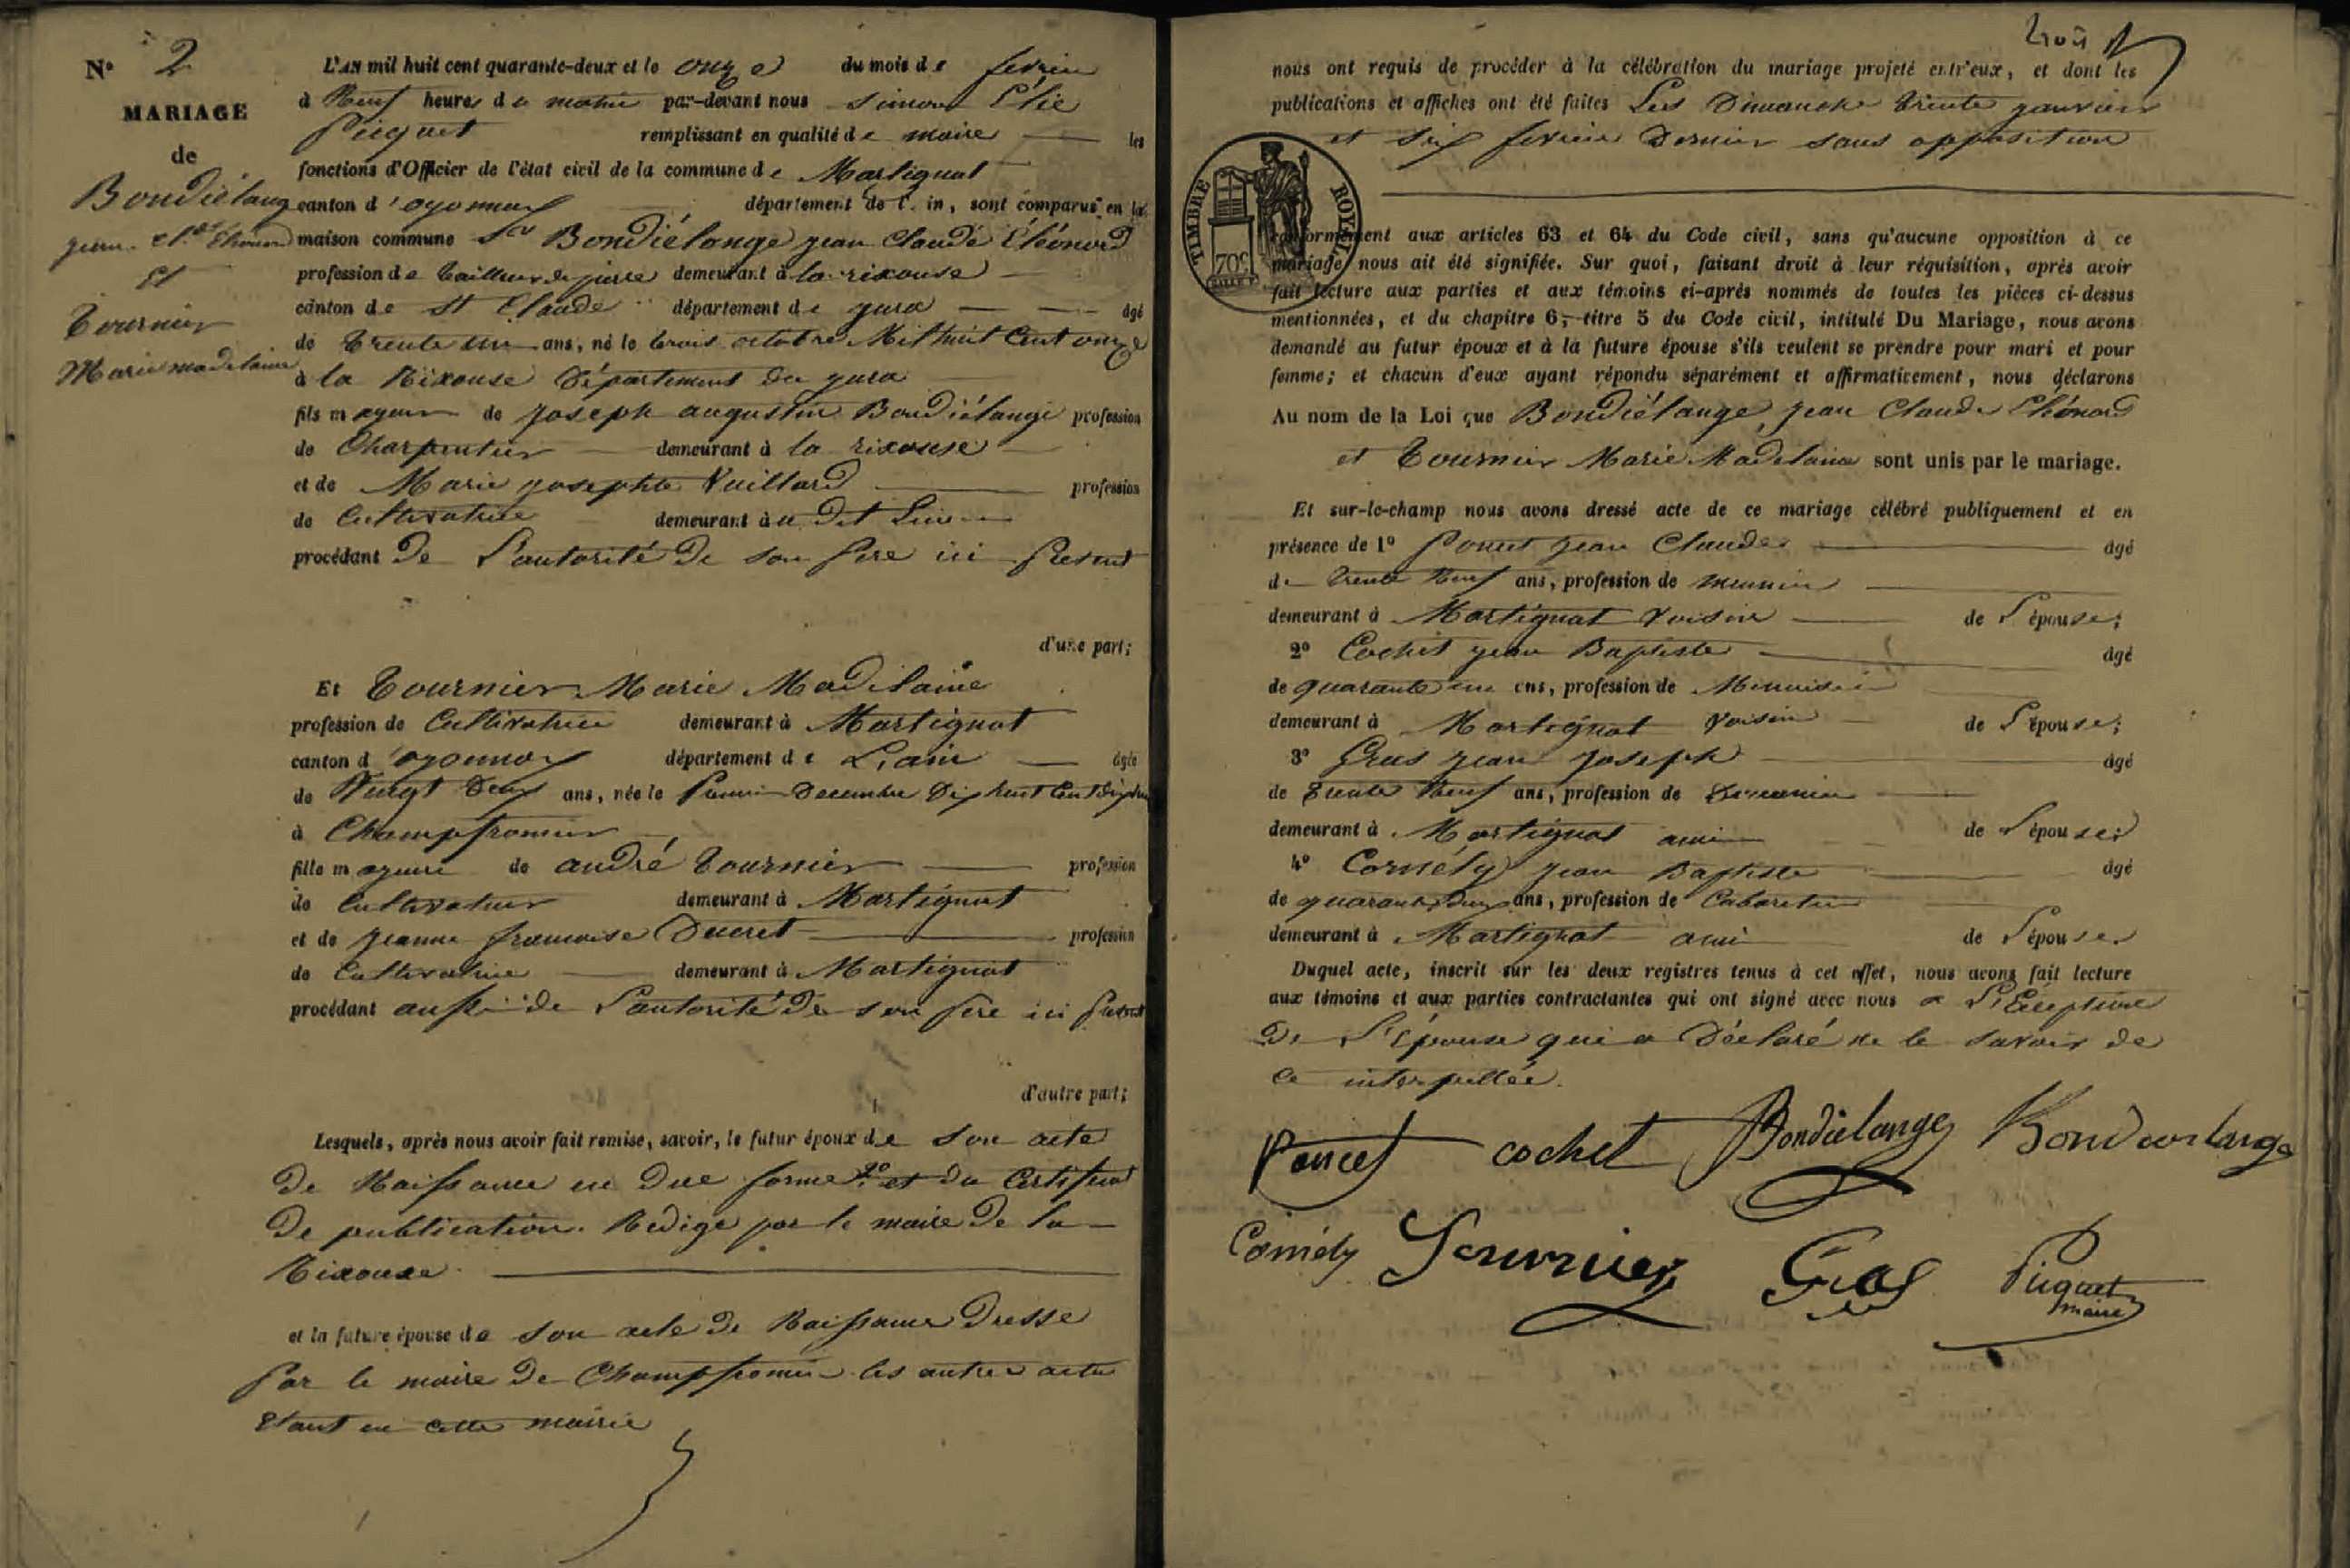 N° 2
MARIAGE
de
Bondiélange
jean Cl.de Ehénord
Et
Tournier
Marie madelaine
L'AN mil huit cent quarante-deux et le onze du mois de fevrier
à Neuf heures du matin par-devant nous simon Elie
Picquet remplissant en qualité de maire les
fonctions d'Officier de l'état civil de la commune de Martignat
canton d'oyonnax département de l'Ain, sont comparus en la
maison commune Sr Bondiélange jean Claude Ehénord
profession de tailleur de pierre demeurant à la rixouse
canton de St Claude département de jura âgé
de trente un ans, né le trois octobre Mil huit Cent onze
à la Rixouse Département du jura
fils mageur de joseph augustin Bondiélange profession
de Charpentier demeurant à la rixouse
et de Marie josephte Vuillard profession
de Cultivatrice demeurant à u dit Lieu
procédant De L'autorité De son pere ici present
d'une part;
Et Tournier Marie Madelaine
profession de Cultivatrice demeurant à Martignat
canton d'oyonnax département de L'ain âgée
de Vingt Deux ans, née le Premier Decembre Dix huit Cent dix neuf
à Champfromier
fille mageure de andré Tournier profession
de Cultivateur demeurant à Martignat
et de jeanne francoise Ducret profession
de Cultivatrice demeurant à Martignat
procédant aussi de L'autorité De son pere ici present
d'autre part;
Lesquels, après nous avoir fait remise, savoir, le futur époux de son acte
De Naissance en Due forme 2° et du Certificat
De publication Redigé par le maire De la
Rixouse
et la future épouse de son acte De Naissance Dressé
Par le maire De Champfromier les autres actes
Etant en cette mairie
nous ont requis de procéder à la célébration du mariage projeté entr'eux, et dont les
publications et affiches ont été faites Les Dimanche trente janvier
et Six fevrier Dernier sans opposition
TIMBRE ROYAL
70c
conformément aux articles 63 et 64 du Code civil, sans qu'aucune opposition à ce
mariage nous ait été signifiée. Sur quoi, faisant droit à leur réquisition, après avoir
fait lecture aux parties et aux témoins ci-après nommés de toutes les pièces ci-dessus
mentionnées, et du chapitre 6, titre 5 du Code civil, intitulé Du Mariage, nous avons
demandé au futur époux et à la future épouse s'ils veulent se prendre pour mari et pour
femme; et chacun d'eux ayant répondu séparément et affirmativement, nous déclarons
Au nom de la Loi que Bondiélange, jean Claude Ehénord
et Tournier Marie Madelaine sont unis par le mariage.
Et sur-le-champ nous avons dressé acte de ce mariage célébré publiquement et en
présence de 1° Poncet jean Claude âgé
de trente Neuf ans, profession de meunier
demeurant à Martignat Voisin de L'épouse;
2° Cochet jean Baptiste âgé
de quarante un ans, profession de Menuisier
demeurant à Martignat Voisin de L'épouse;
3° Gras jean joseph âgé
de trente Neuf ans, profession de
demeurant à Martignat ami de L'épouse;
4° Cornély jean Baptiste âgé
de quarante deux ans, profession de Cabaretier
demeurant à Martignat ami de L'épouse.
Duquel acte, inscrit sur les deux registres tenus à cet effet, nous avons fait lecture
aux témoins et aux parties contractantes qui ont signé avec nous a L'Exception
De L'Epouse qui a Déclaré ne le savoir de
ce interpellée.
Poncet cochet Bondielange Bondielange
Cornély Tournier Gras Picquet
maire